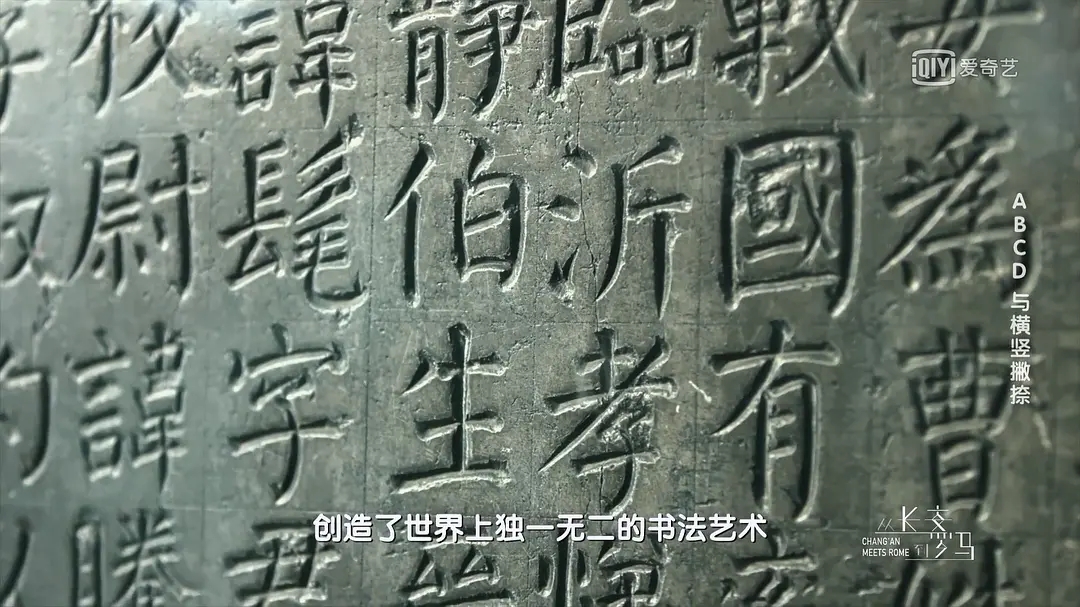 iQIYI 爱奇艺
ABCD与横竖撇捺
爲曹
戰國有
臨沂孝
靜伯生
諱髦字
校尉諱騰
创造了世界上独一无二的书法艺术
从长安到罗马
CHANG'AN
MEETS ROME